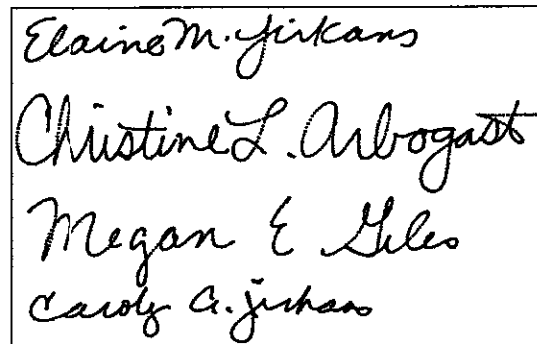 Elaine M. Jirkans
Christine L. Arbogast
Megan E Giles
Caroly A. Jirkans